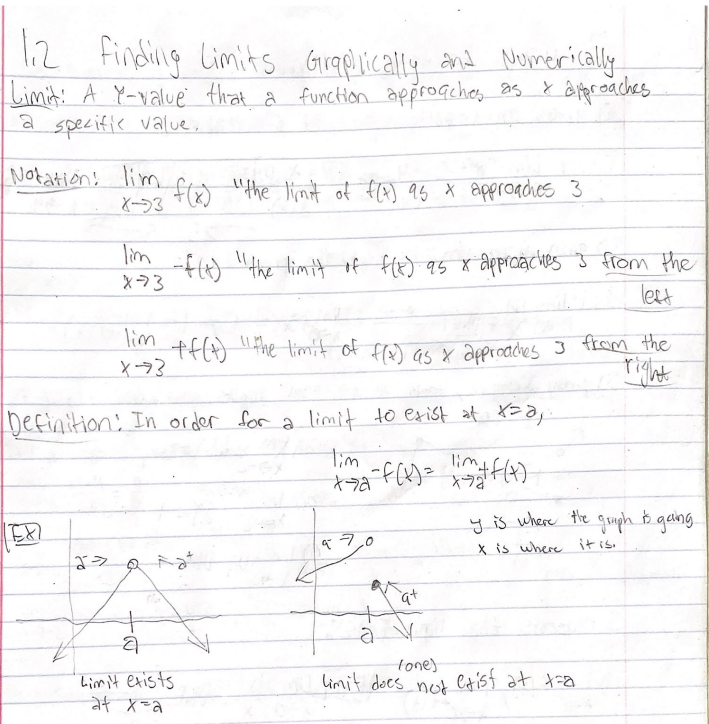 1.2 Finding Limits Graphically and Numerically
Limit: A Y-value that a function approaches as x approaches
a specific value.
Notation: lim x→3 f(x) "the limit of f(x) as x approaches 3
lim x→3 -f(x) "the limit of f(x) as x approaches 3 from the
left
lim x→3 +f(x) "the limit of f(x) as x approaches 3 from the
right
Definition: In order for a limit to exist at x=a,
lim x→a -f(x) = lim x→a +f(x)
EX
y is where the graph is going
x is where it is.
a→ ←a+
a→
a+
a
a
Limit exists
at x=a
(one)
Limit does not exist at x=a